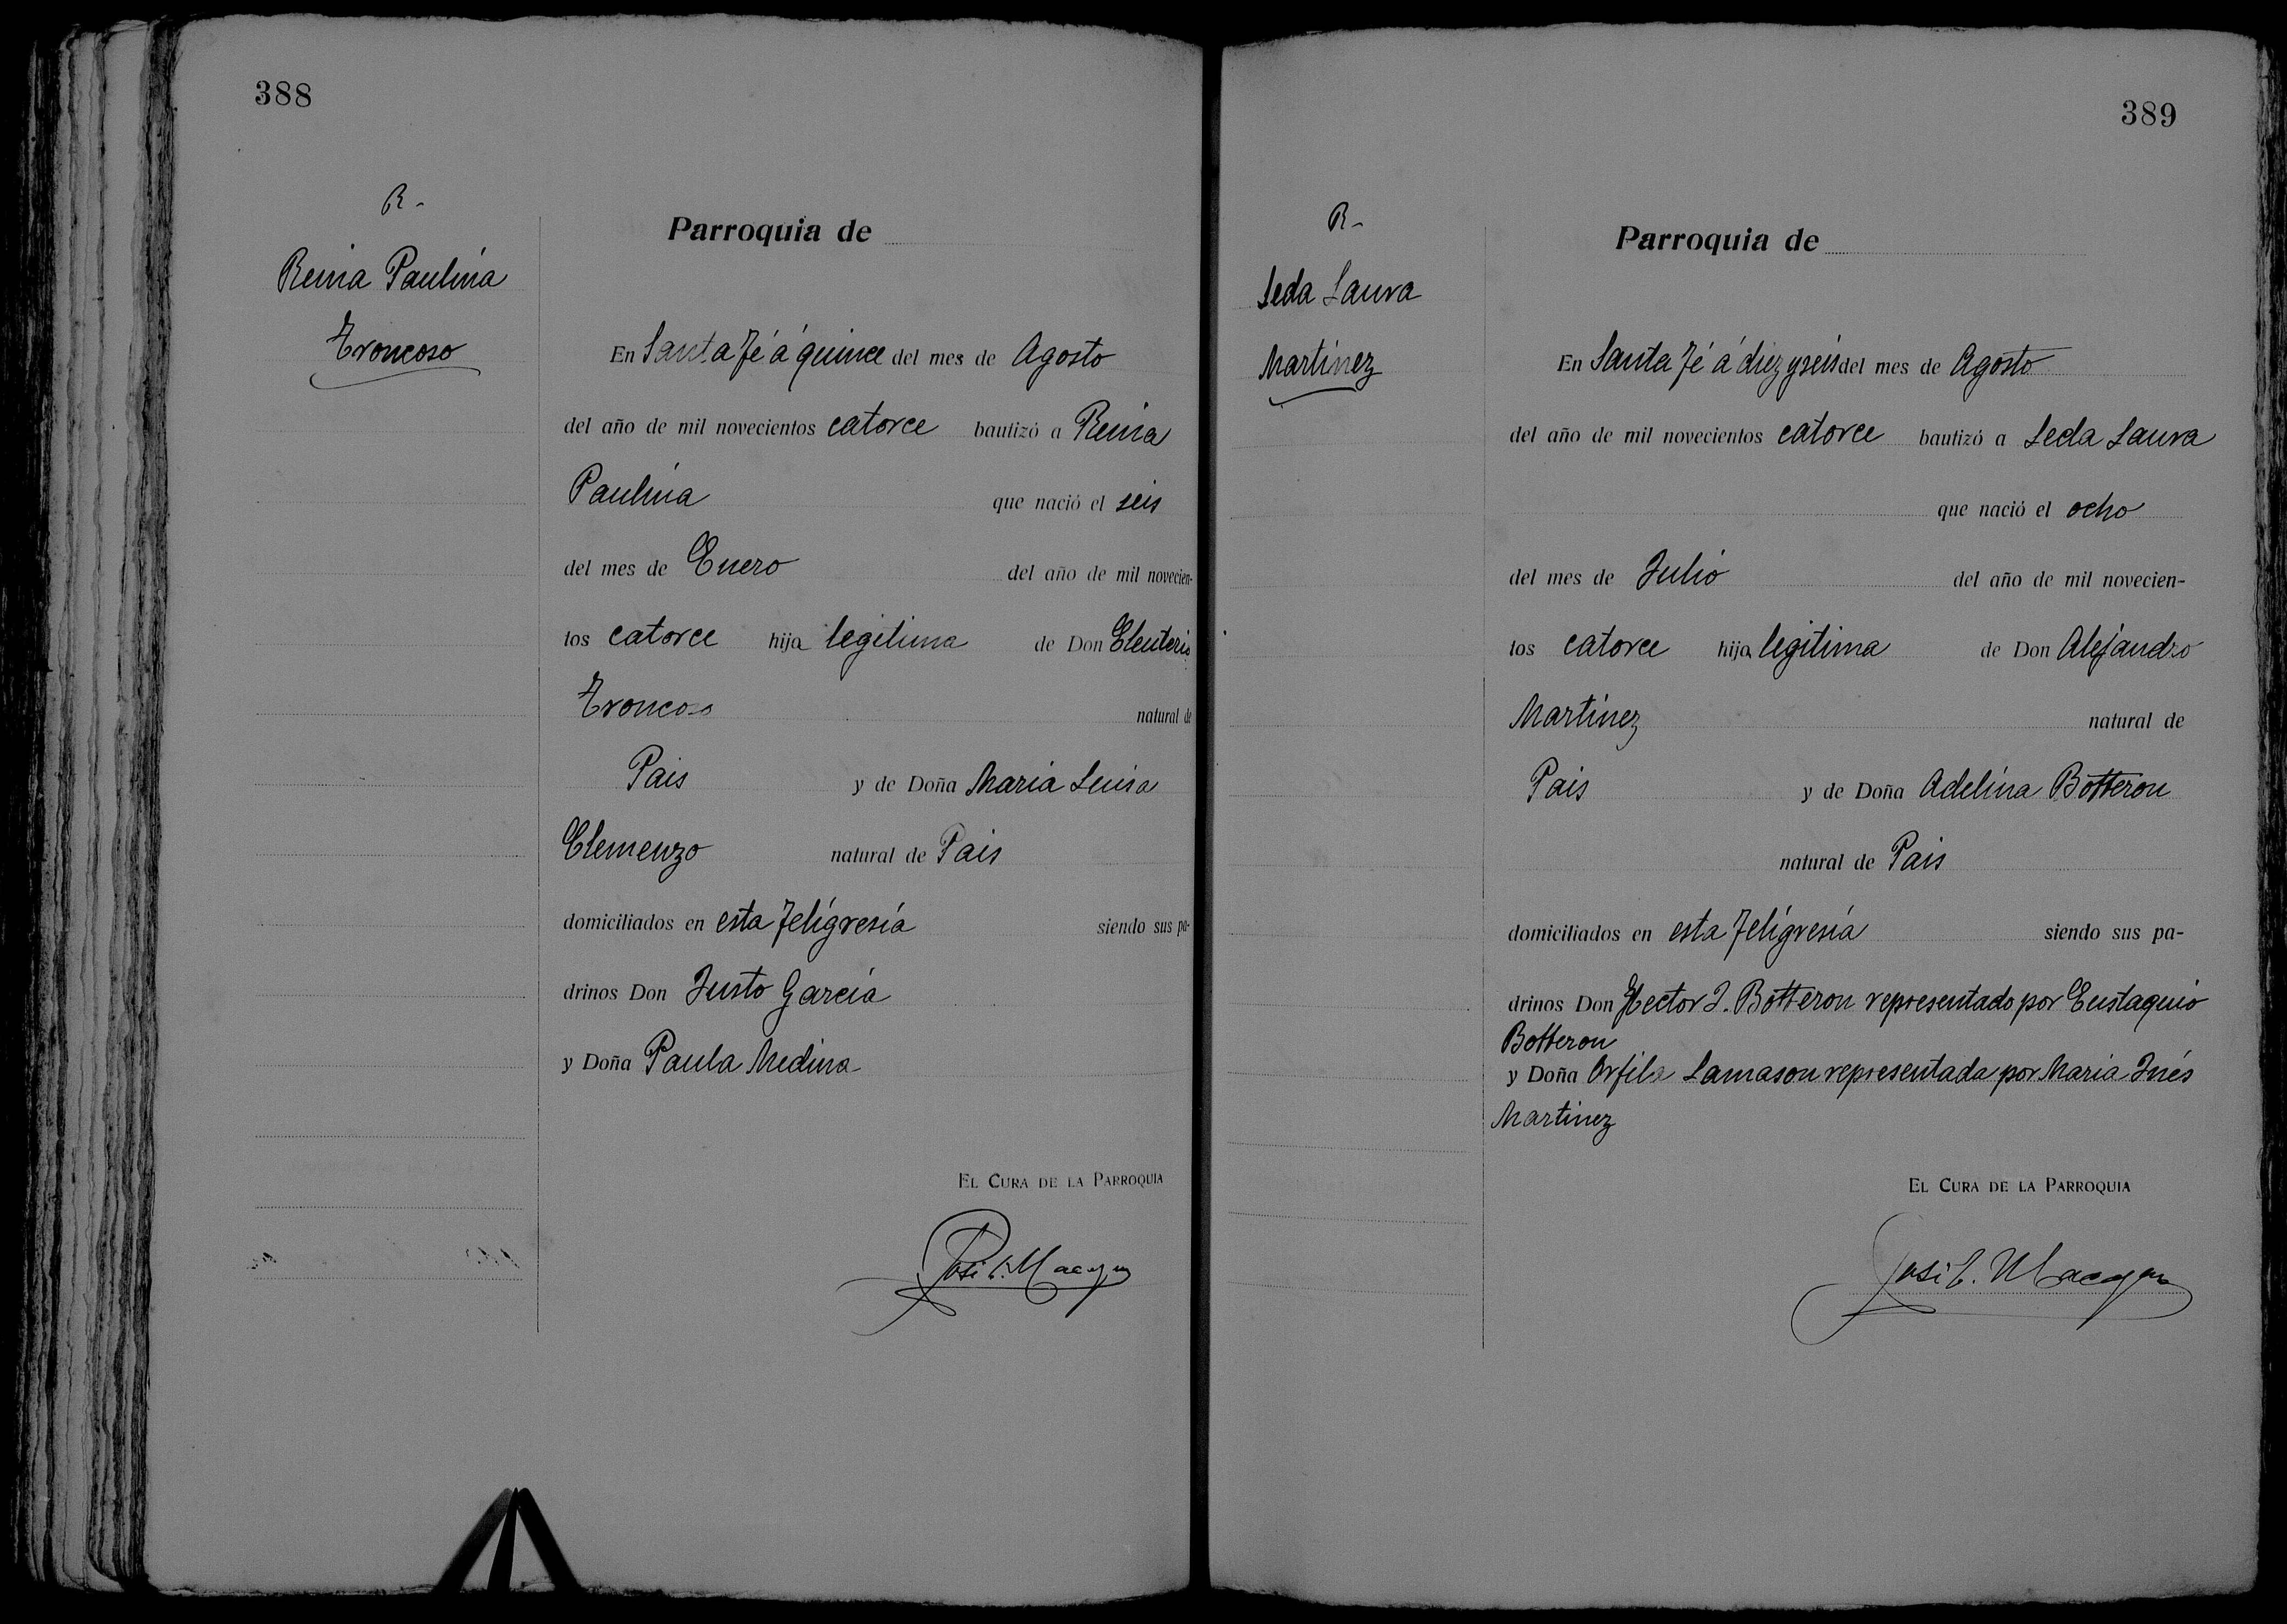 388
R-
Reina Paulina
Troncoso
Parroquia de
En Santa Fé á quince del mes de Agosto
del año de mil novecientos catorce bautizó a Reina
Paulina que nació el seis
del mes de Enero del año de mil novecien-
tos catorce hija legitima de Don Eleuterio
Troncoso natural de
Pais y de Doña Maria Luisa
Clemenzo natural de Pais
domiciliados en esta Feligresia siendo sus pa-
drinos Don Justo Garcia
y Doña Paula Medina
EL CURA DE LA PARROQUIA
389
R-
Leda Laura
Martinez
Parroquia de
En Santa Fé á diez y seis del mes de Agosto
del año de mil novecientos catorce bautizó a Leda Laura
que nació el ocho
del mes de Julio del año de mil novecien-
tos catorce hija legitima de Don Alejandro
Martinez natural de
Pais y de Doña Adelina Botteron
natural de Pais
domiciliados en esta Feligresia siendo sus pa-
drinos Don Hector J. Botteron representado por Eustaquio
Botteron
y Doña Orfila Lamason representada por Maria Inés
Martinez
EL CURA DE LA PARROQUIA